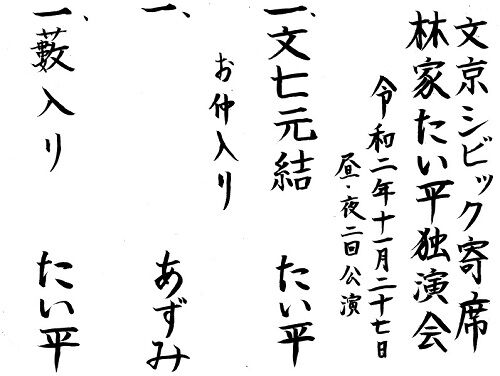 文京シビック寄席
林家たい平独演会
令和二年十一月二十七日
昼・夜二回公演
一、文七元結 たい平
お仲入り
一、 あずみ
一、藪入り たい平